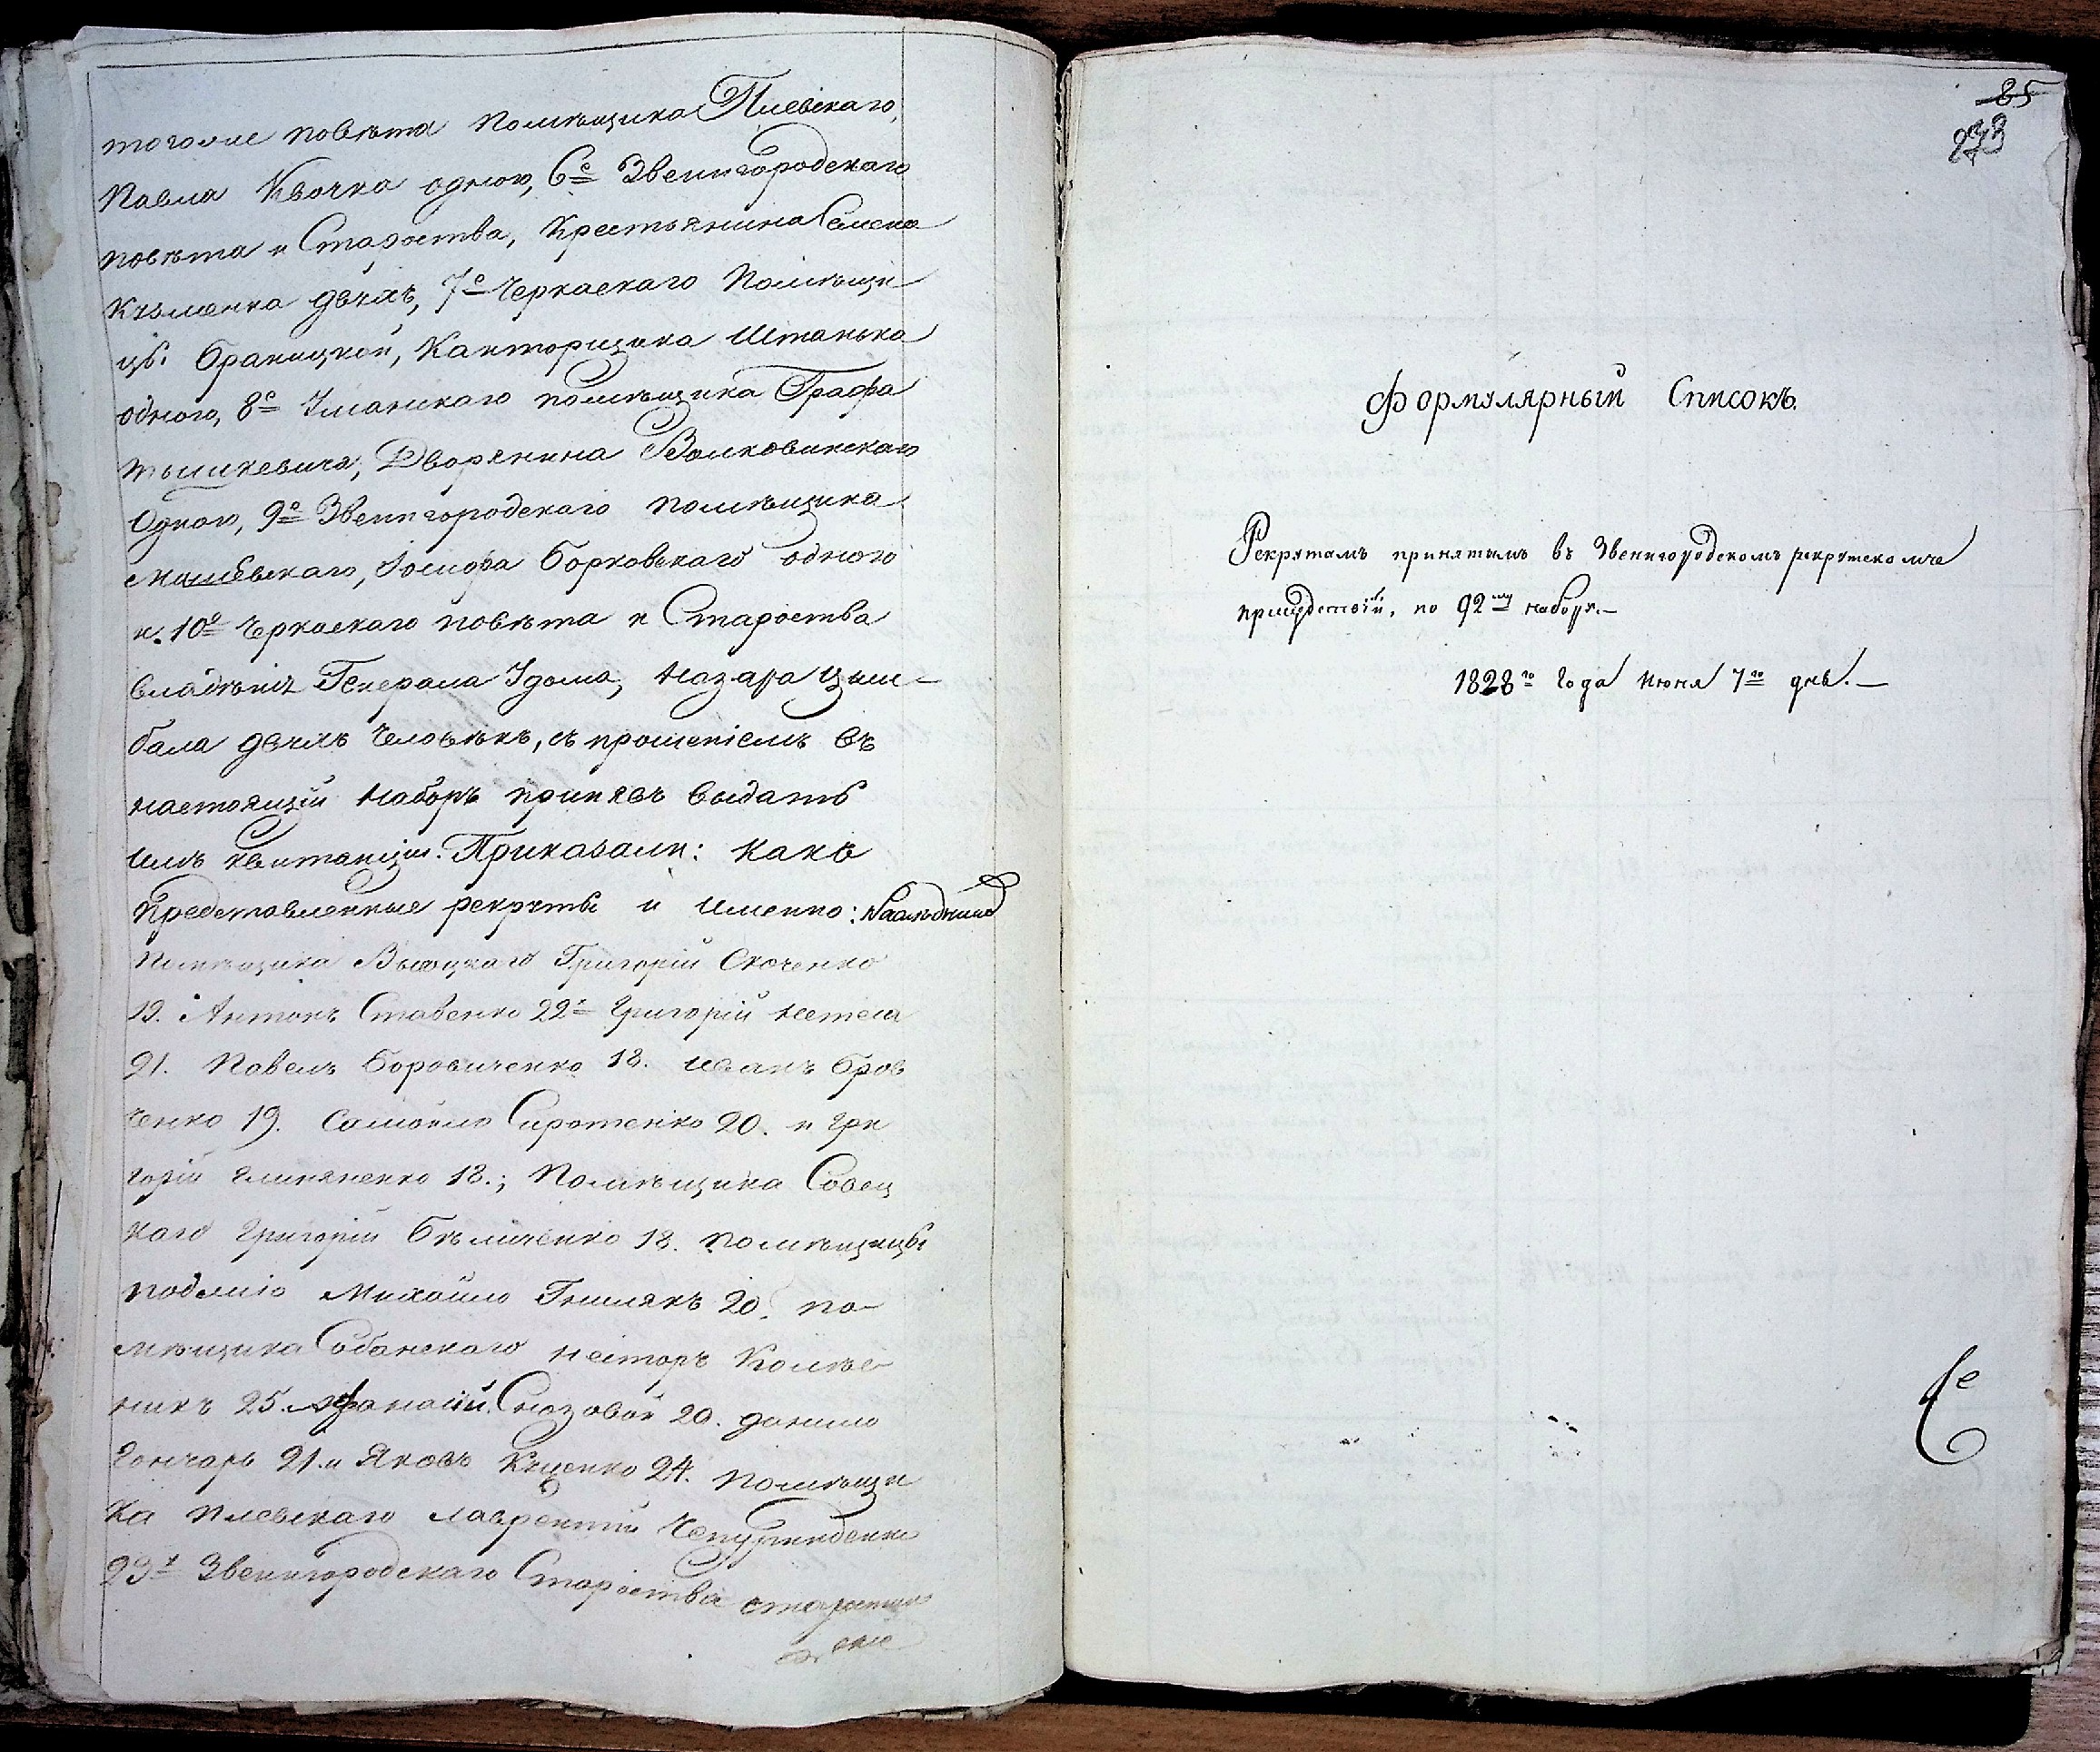 тогоже повѣта помѣщика Плевскаго,
Павла Квочка одного, 6е Звенигородскаго
повѣта и Староства, Крестьянина Семена
Кузменка двухъ, 7е Черкаскаго Помѣщи
цы Браницкой, Канторщика Штанька
одного, 8е Уманскаго помѣщика Графа
Тышкевича, Дворянина Волковинскаго
Одного, 9е Звенигородскаго помѣщика
Іосифа Борковскаго одного
и 10е Черкаскаго повѣта и Староства
владѣнія Генерала Удома, Назара Цым-
бала двухъ человѣкъ, съ прошеніемъ въ
настоящій Наборъ принявъ выдать
имъ квитанціи. Приказали: какъ
Представленные рекруты и именно:
Помѣщика Высоцкаго Григорій
19. Антонъ Ставенко 22. Григорій Нетеса
21. Павелъ Боровиченко 18. Иванъ Бров
ченко 19. Самойло Сиротенко 20. и Гри
горій Глиняненко 18.; Помѣщика Совец
каго Григорій Бѣличенко 18. помѣщицы
Михайло Гнилякъ 20. по-
мѣщика Собанскаго Несторъ Колѣс-
никъ 25. Афанасій 20. Данило
Гончаръ 21. и Яковъ Куценко 24. помѣщи
ка Плевскаго Лаврентій
23. Звенигородскаго Староства
85
273
Формулярный Списокъ.
Рекрутамъ принятымъ въ Звенигородскомъ рекрутскомъ
присудствіи, по 92му набору.—
1828го Года Июня 7го дня.—